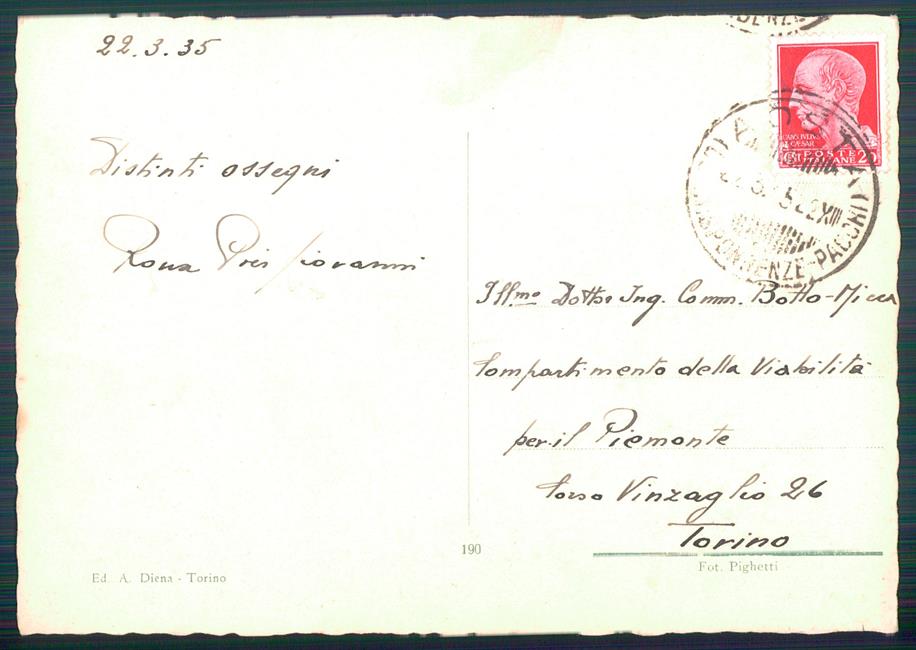 22.3.35
Distinti ossequi
Rova Pier Giovanni
Ill.mo Dott. Ing. Comm. Botto-Micca
Compartimento della Viabilità
per il Piemonte
Corso Vinzaglio 26
Torino
190
Ed. A. Diena - Torino
Fot. Pighetti
CAIVS IVLIVS
CAESAR
POSTE
ITALIANE 20
AOSTA
CORRISPONDENZE-PACCHI
XIII